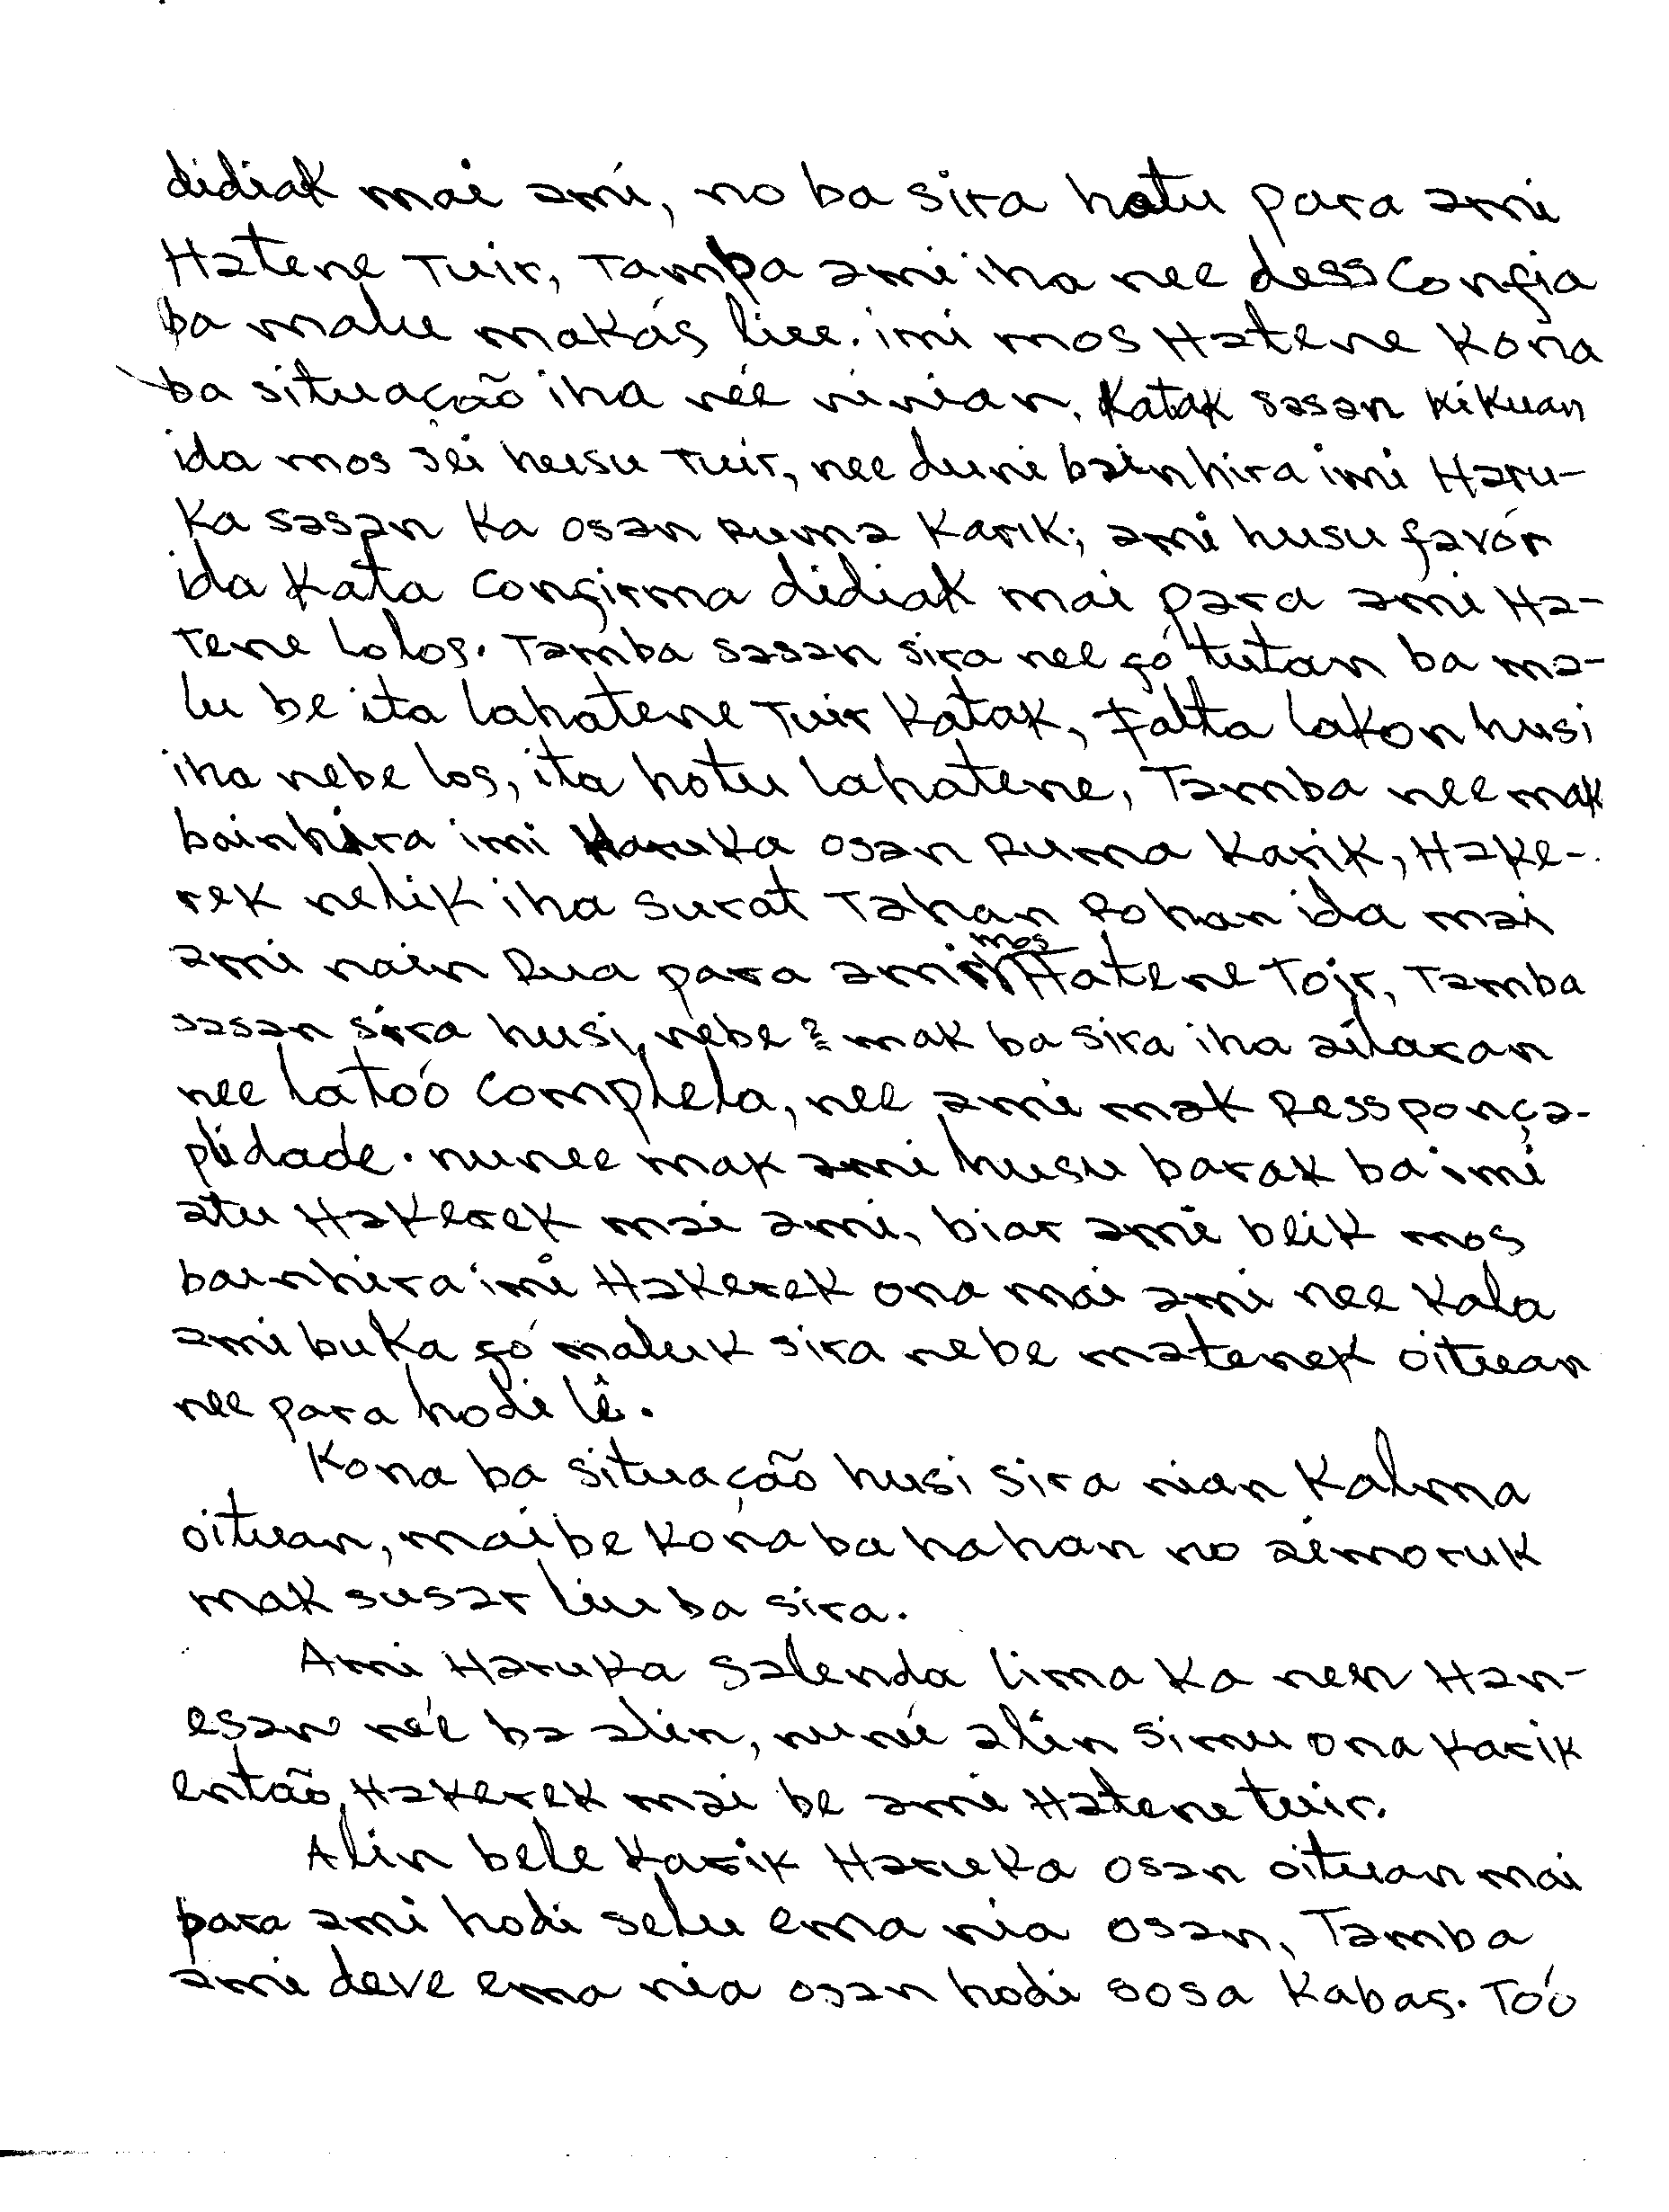 didiak mai ami, no ba sira hotu para ami
Hatene Tuir, Tamba ami iha nee dessConfia
ba malu makás liu. imi mos Hatene Kona
ba situação iha néé ninian, Katak sasan kikuan
ida mos sei husu Tuir, nee duni bainhira imi Haru-
Ka sasan Ka osan Ruma Karik; ami husu favór
ida Kata Confirma didiak mai para ami Ha-
Tene Lolos. Tamba sasan sira nee fó tutan ba ma-
lu be ita lahatene Tuir Katak, falta lakon husi
iha nebe los, ita hotu lahatene, Tamba nee mak
bainhira imi Haruka osan Ruma Karik, Hake-
rek nelik iha surat Tahan Rohan ida mai
ami nain Rua para ami mos Hatene Toir, Tamba
sasan sira husi nebe? mak ba sira iha ailaran
nee latóó Completa, nee ami mak Ressponça-
plidade. nunee mak ami husu barak ba imi
atu Hakerek mai ami, biar ami beik mos
bainhira imi Hakerek ona mai ami nee Kala
ami buka fó maluk sira nebe matenek oituan
nee para hodi lê.
Kona ba situação husi sira nian Kalma
oituan, maibe Kona ba hahan no aimoruk
mak susar liu ba sira.
Ami Haruka salenda lima Ka nen Han-
esan néé ba alin, nuné alin simu ona Karik
então, Hakerek mai be ami Hatene tuir.
Alin bele Karik Haruka osan oituan mai
para ami hodi selu ema nia osan, Tamba
ami deve ema nia osan hodi sosa Kabas. Tóó